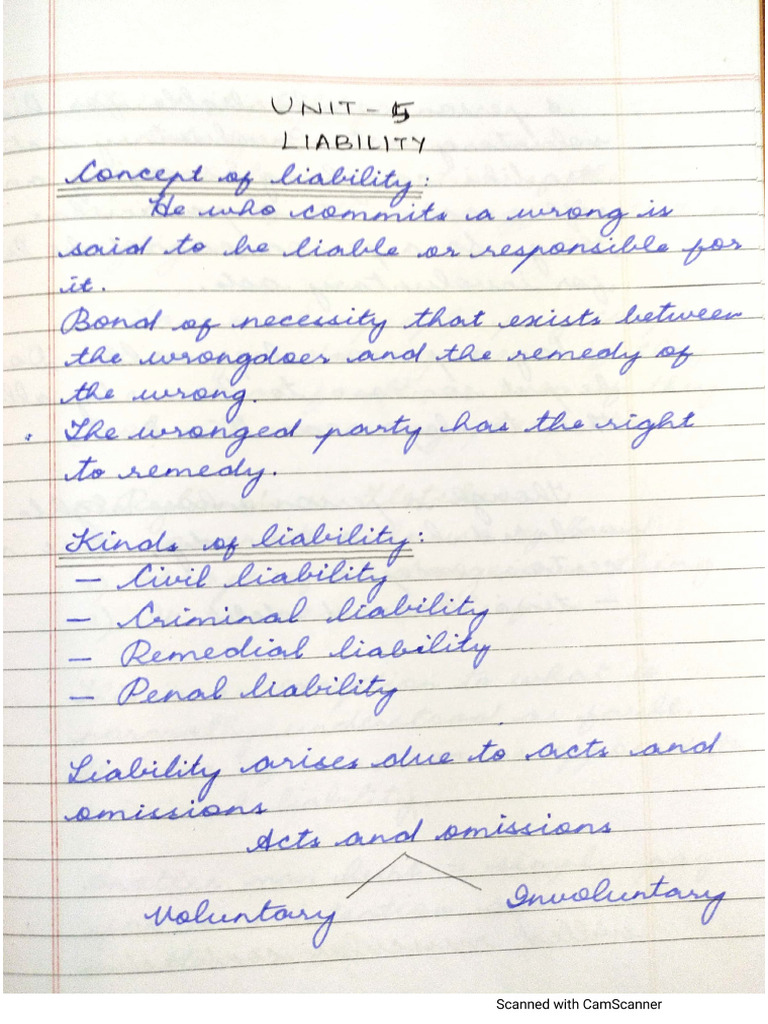 UNIT - 5
LIABILITY
Concept of liability:
He who commits a wrong is
said to be liable or responsible for
it.
Bond of necessity that exists between
the wrongdoer and the remedy of
the wrong.
. The wronged party has the right
to remedy.
Kinds of liability:
- Civil liability
- Criminal liability
- Remedial liability
- Penal liability
Liability arises due to acts and
omissions
Acts and omissions
Voluntary Involuntary
Scanned with CamScanner